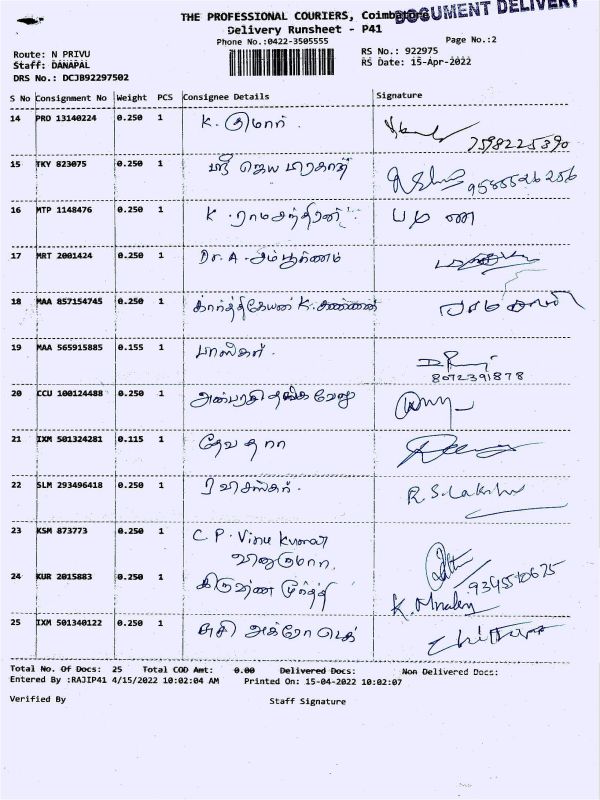 THE PROFESSIONAL COURIERS, Coimbatore
DOCUMENT DELIVERY
Delivery Runsheet - P41
Phone No.:0422-3505555
Page No.:2
Route: N PRIVU
RS No.: 922975
Staff: DANAPAL
RS Date: 15-Apr-2022
DRS No.: DCJB92297502
S No Consignment No Weight PCS Consignee Details Signature
14 PRO 13140224 0.250 1 K. குமார்.
7598225390
15 TKY 823075 0.250 1 ஸ்ரீ ஜெய பிரகாஷ்
9585526256
16 MTP 1148476 0.250 1 K. ராமசந்திரன்
17 MRT 2001424 0.250 1 Dr. A.
18 MAA 857154745 0.250 1 கார்த்திகேயன் K. கண்ணன்
19 MAA 565915885 0.155 1 பாஸ்கர்.
8072391878
20 CCU 100124488 0.250 1
21 IXM 501324281 0.115 1 தேவதா
22 SLM 293496418 0.250 1 ரவிசங்கர். R.S. Lakshu
23 KSM 873773 0.250 1 C. P. Vinu Kumar
வினுகுமார்.
24 KUR 2015883 0.250 1 கிருஷ்ண மூர்த்தி 9345510675
25 IXM 501340122 0.250 1 அக்ரோ டெக்
Total No. Of Docs: 25 Total COD Amt: 0.00 Delivered Docs: Non Delivered Docs:
Entered By :RAJIP41 4/15/2022 10:02:04 AM Printed On: 15-04-2022 10:02:07
Verified By Staff Signature